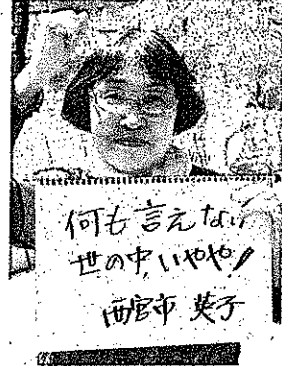 何も言えない
世の中,いやや!
西宮市 英子